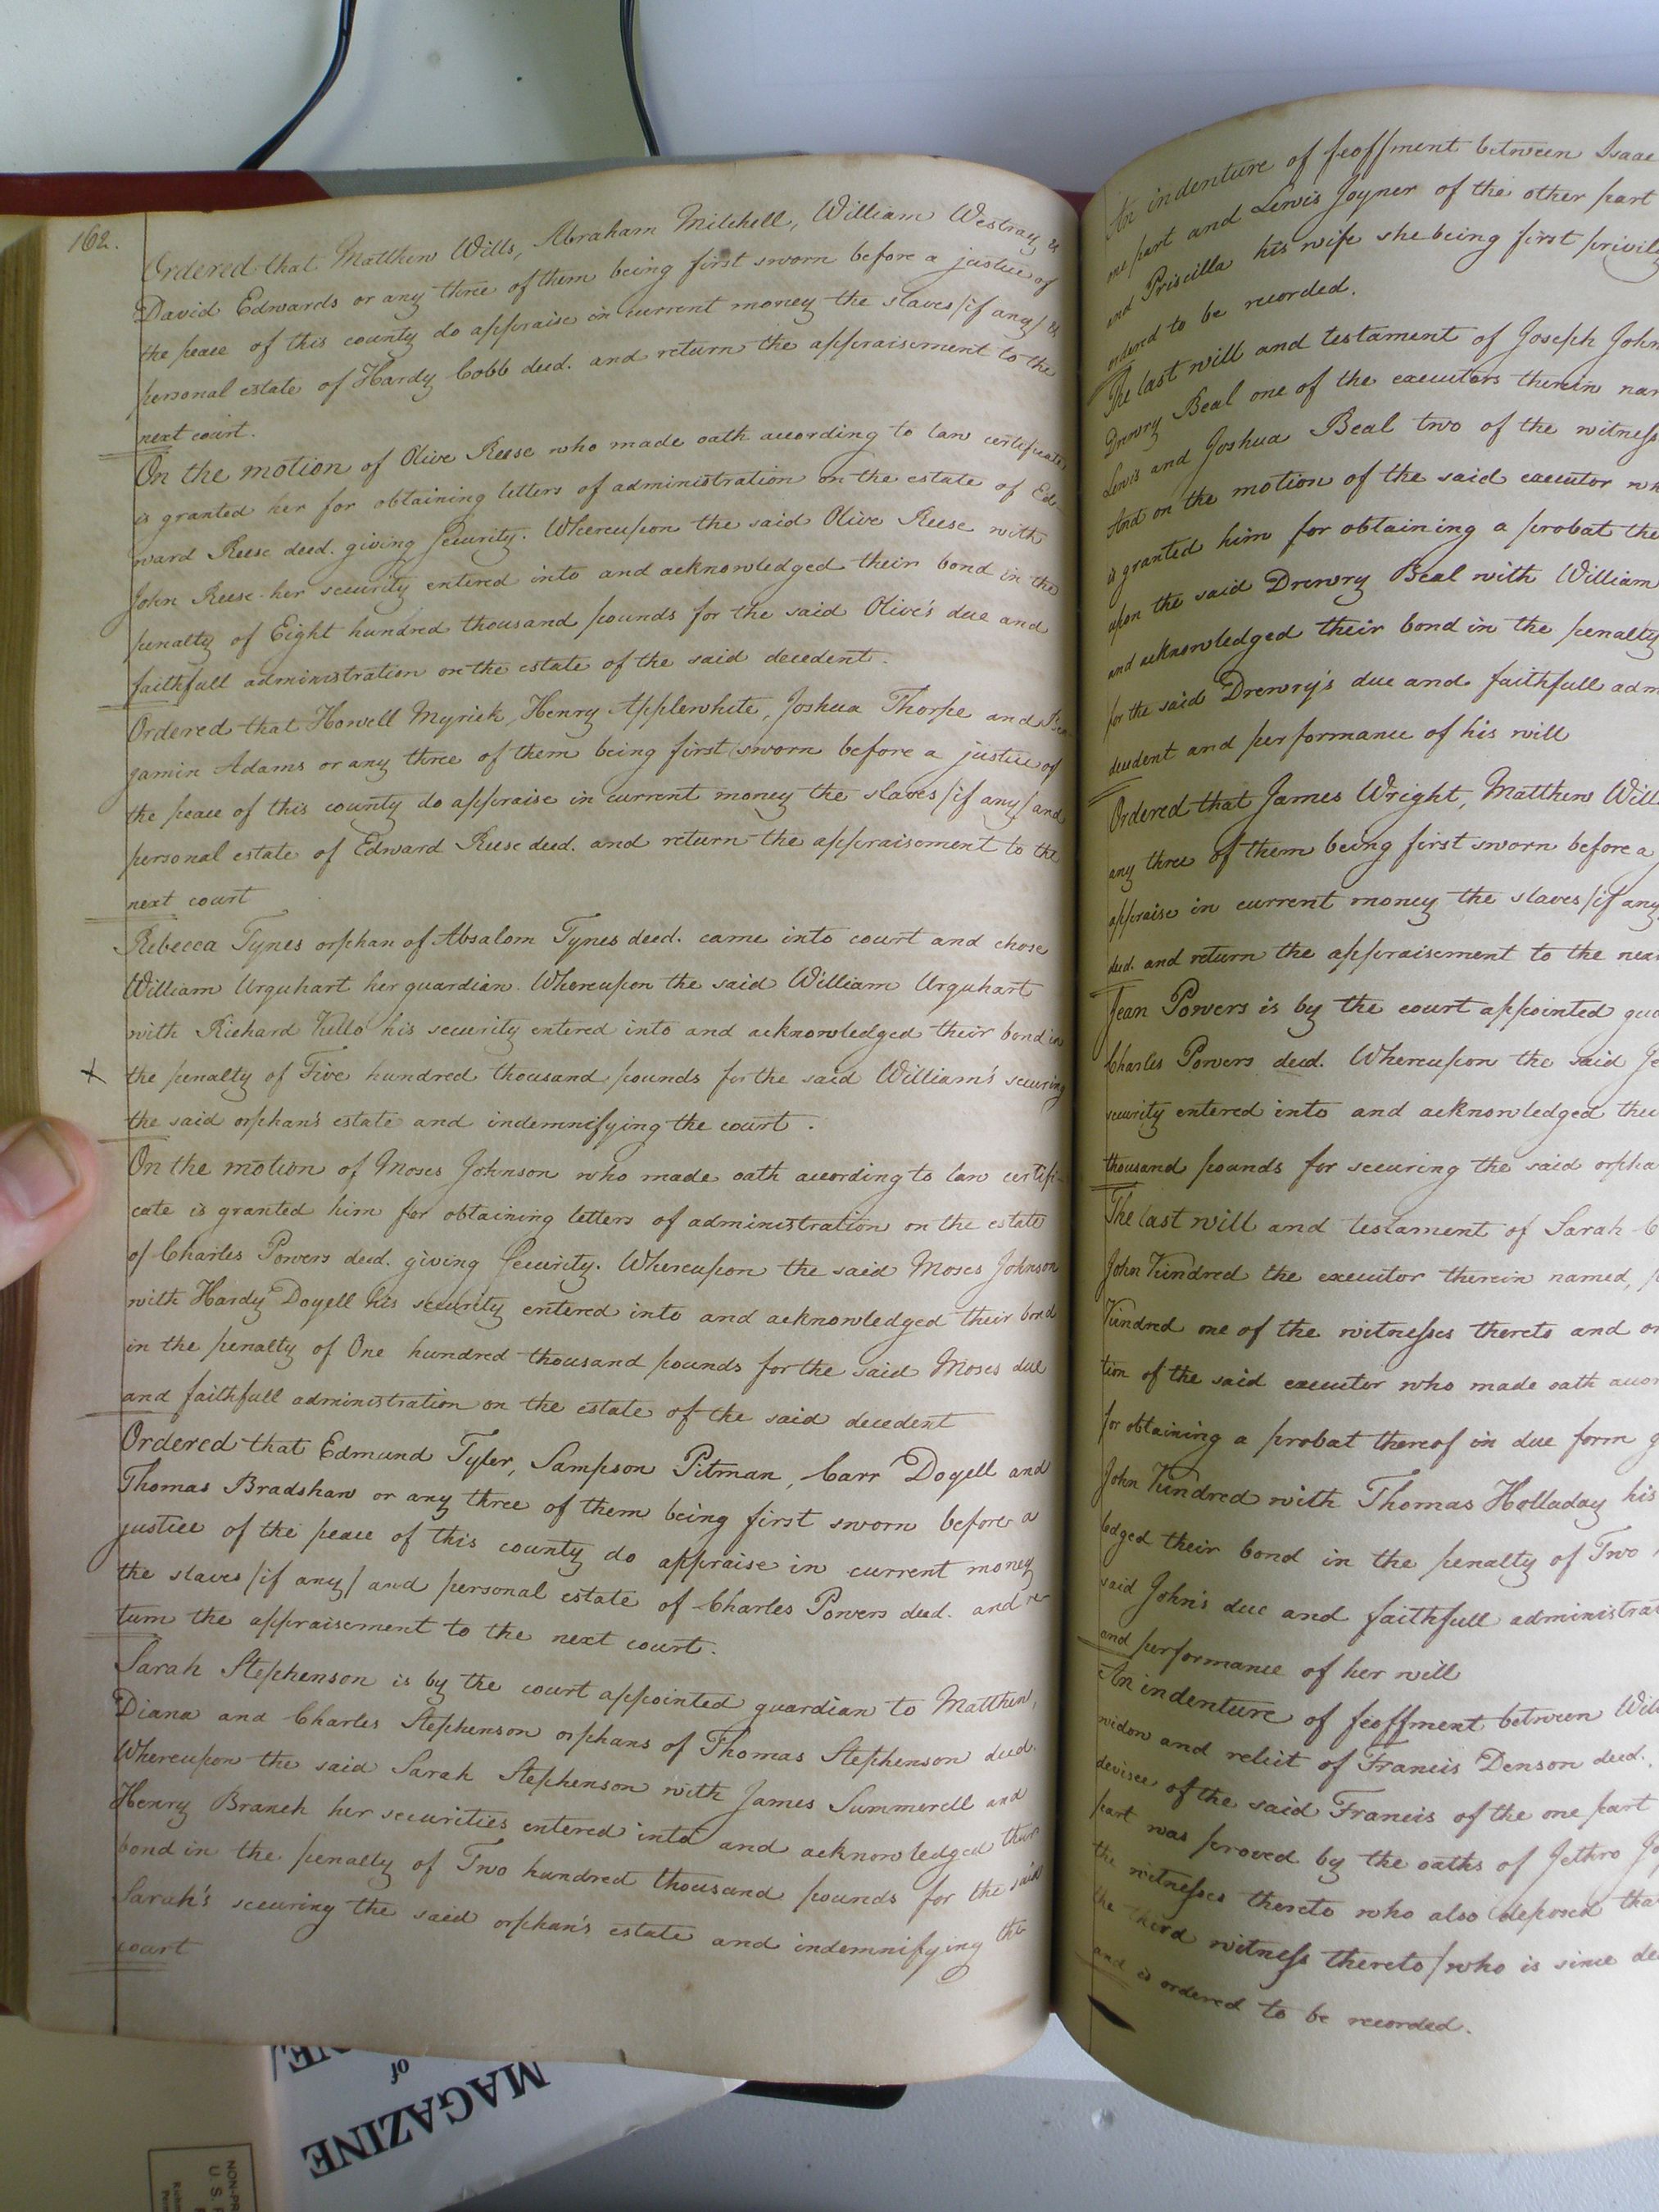 162.
Ordered that Matthew Wills, Abraham Mitchell, William Westray &
David Edwards or any three of them being first sworn before a justice of
the peace of this county do appraise in current money the slaves /if any/ &
personal estate of Hardy Cobb deed. and return the appraisement to the
next court.
On the motion of Olive Reese who made oath according to law certificate
is granted her for obtaining letters of administration on the estate of Ed-
ward Reese deed. giving security. Whereupon the said Olive Reese with
John Reese her security entered into and acknowledged their bond in the
penalty of Eight hundred thousand pounds for the said Olive's due and
faithfull administration on the estate of the said decedent.
Ordered that Howell Myrick, Henry Applewhite, Joshua Thorpe and Ben
jamin Adams or any three of them being first sworn before a justice of
the peace of this county do appraise in current money the slaves /if any/ and
personal estate of Edward Reese deed. and return the appraisement to the
next court
Rebecca Tynes orphan of Absalom Tynes deed. came into court and chose
William Urquhart her guardian. Whereupon the said William Urquhart
with Richard Kello his security entered into and acknowledged their bond in
X the penalty of Five hundred thousand pounds for the said William's securing
the said orphan's estate and indemnifying the court.
On the motion of Moses Johnson who made oath according to law certifi-
cate is granted him for obtaining letters of administration on the estate
of Charles Powers deed. giving security. Whereupon the said Moses Johnson
with Hardy Doyell his security entered into and acknowledged their bond
in the penalty of One hundred thousand pounds for the said Moses due
and faithfull administration on the estate of the said decedent
Ordered that Edmund Tyler, Sampson Pitman, Carr Doyell and
Thomas Bradshaw or any three of them being first sworn before a
justice of the peace of this county do appraise in current money
the slaves /if any/ and personal estate of Charles Powers deed. and re-
turn the appraisement to the next court.
Sarah Stephenson is by the court appointed guardian to Matthew,
Diana and Charles Stephenson orphans of Thomas Stephenson deed.
Whereupon the said Sarah Stephenson with James Summerell and
Henry Branch her securities entered into and acknowledged their
bond in the penalty of Two hundred thousand pounds for the said
Sarah's securing the said orphan's estate and indemnifying the
court
An indenture of feoffment between Isaac
one part and Lewis Joyner of the other part
and Priscilla his wife she being first privily
ordered to be recorded.
The last will and testament of Joseph John
Drewry Beal one of the executors therein nam
Lewis and Joshua Beal two of the witness
And on the motion of the said executor wh
is granted him for obtaining a probat the
upon the said Drewry Beal with William
and acknowledged their bond in the penalty
for the said Drewry's due and faithfull adm
decedent and performance of his will
Ordered that James Wright, Matthew Will
any three of them being first sworn before a
appraise in current money the slaves /if any
deed. and return the appraisement to the nex
Jean Powers is by the court appointed gua
Charles Powers deed. Whereupon the said Je
security entered into and acknowledged thei
thousand pounds for securing the said orpha
The last will and testament of Sarah
John Kindred the executor therein named, p
Kindred one of the witnesses thereto and on
tion of the said executor who made oath accor
for obtaining a probat thereof in due form g
John Kindred with Thomas Holladay his
ledged their bond in the penalty of Two
said John's due and faithfull administrat
and performance of her will
An indenture of feoffment between Will
widow and relict of Francis Denson deed.
devisee of the said Francis of the one part
part was proved by the oaths of Jethro Jo
the witnesses thereto who also deposed tha
the third witness thereto /who is since de
and is ordered to be recorded.
MAGAZINE
of
NON-PR
U. S.